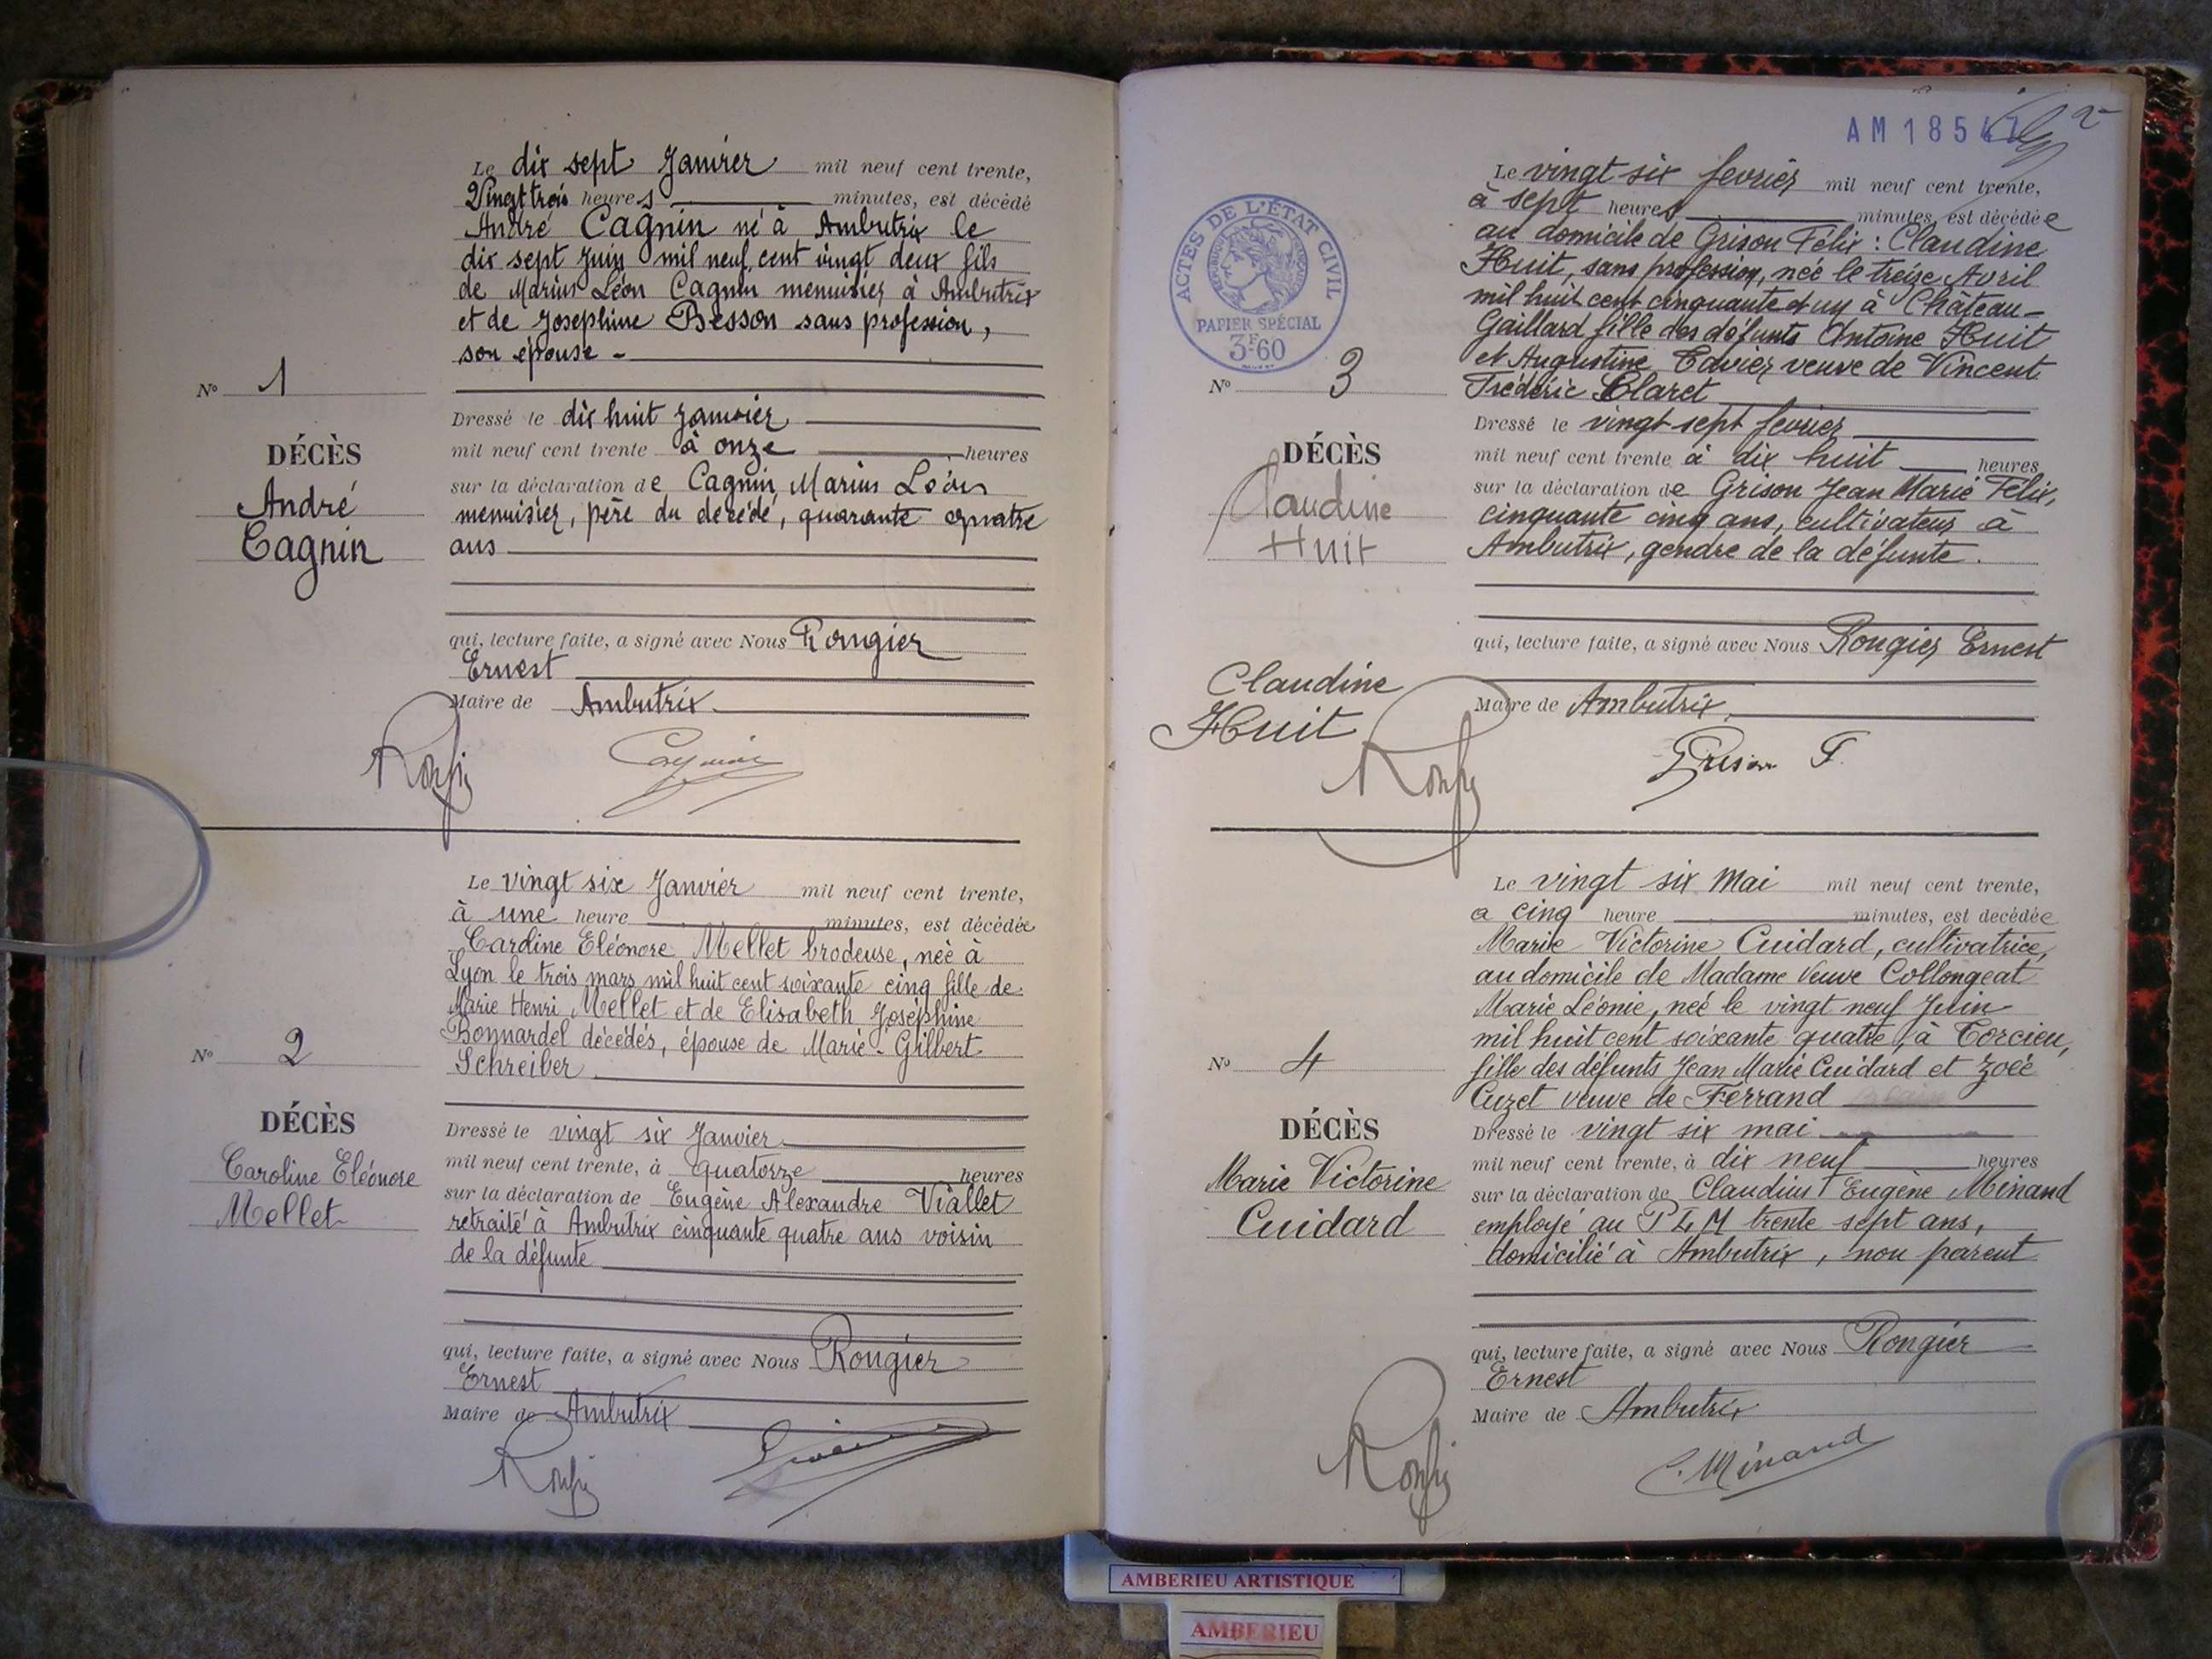 Le dix sept Janvier mil neuf cent trente,
Vingt trois heures minutes, est décédé
André Cagnin né à Ambutrix le
dix sept Juin mil neuf cent vingt deux fils
de Marius Léon Cagnin menuisier à Ambutrix
et de Josephine Besson sans profession,
son épouse -
N° 1
DÉCÈS
André
Cagnin
Dressé le dix huit Janvier
mil neuf cent trente à onze heures
sur la déclaration de Cagnin, Marius Léon
menuisier, père du décédé, quarante quatre
ans
qui, lecture faite, a signé avec Nous Rougier
Ernest
Maire de Ambutrix
Cagnin
Le vingt six Janvier mil neuf cent trente,
à une heure minutes, est décédée
Caroline Eléonore Mellet brodeuse, née à
Lyon le trois mars mil huit cent soixante cinq fille de
Marie Henri Mellet et de Elisabeth Joséphine
Bonnardel décédés, épouse de Marie-Gilbert
Schreiber
N° 2
DÉCÈS
Caroline Eléonore
Mellet
Dressé le vingt six Janvier
mil neuf cent trente, à quatorze heures
sur la déclaration de Eugène Alexandre Viallet
retraité à Ambutrix cinquante quatre ans voisin
de la défunte
qui, lecture faite, a signé avec Nous Rougier
Ernest
Maire de Ambutrix
AM 185
2
ACTES DE L'ÉTAT CIVIL
RÉPUBLIQUE FRANÇAISE
PAPIER SPÉCIAL
3F60
Le vingt six fevrier mil neuf cent trente,
à sept heures minutes, est décédée
au domicile de Grison Félix : Claudine
Huit, sans profession, née le treize Avril
mil huit cent cinquante et un à Château-
Gaillard fille des défunts Antoine Huit
et Augustine veuve de Vincent
Frédéric Claret
N° 3
DÉCÈS
Claudine
Huit
Dressé le vingt sept fevrier
mil neuf cent trente à dix huit heures
sur la déclaration de Grison Jean Marie Félix,
cinquante cinq ans, cultivateur à
Ambutrix, gendre de la défunte.
qui, lecture faite, a signé avec Nous Rougier Ernest
Claudine
Huit
Maire de Ambutrix
Grison F.
Le vingt six Mai mil neuf cent trente,
a cinq heure minutes, est decédée
Marie Victorine Cuidard, cultivatrice,
au domicile de Madame Veuve Collongeat
Marie Léonie, neé le vingt neuf Juin
mil huit cent soixante quatre, à Torcieu,
fille des défunts Jean Marie Cuidard et Zoée
Cuzet veuve de Ferrand
N° 4
DÉCÈS
Marie Victorine
Cuidard
Dressé le vingt six mai
mil neuf cent trente, à dix neuf heures
sur la déclaration de Claudius Eugène Minand
employé au P L M trente sept ans,
domicilié à Ambutrix, non parent
qui, lecture faite, a signé avec Nous Rougier
Ernest
Maire de Ambutrix
C. Minand
AMBERIEU ARTISTIQUE
AMBERIEU